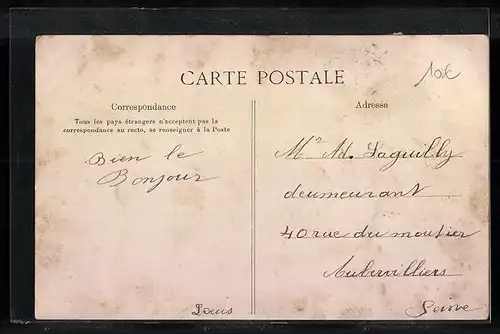 CARTE POSTALE
10€
Correspondance
Tous les pays étrangers n'acceptent pas la
correspondance au recto, se renseigner à la Poste
Bien le
Bonjour
Louis
Adresse
Mr Ad. Laguilly
deumeurant
40 rue du moutier
Aubervilliers
Seine